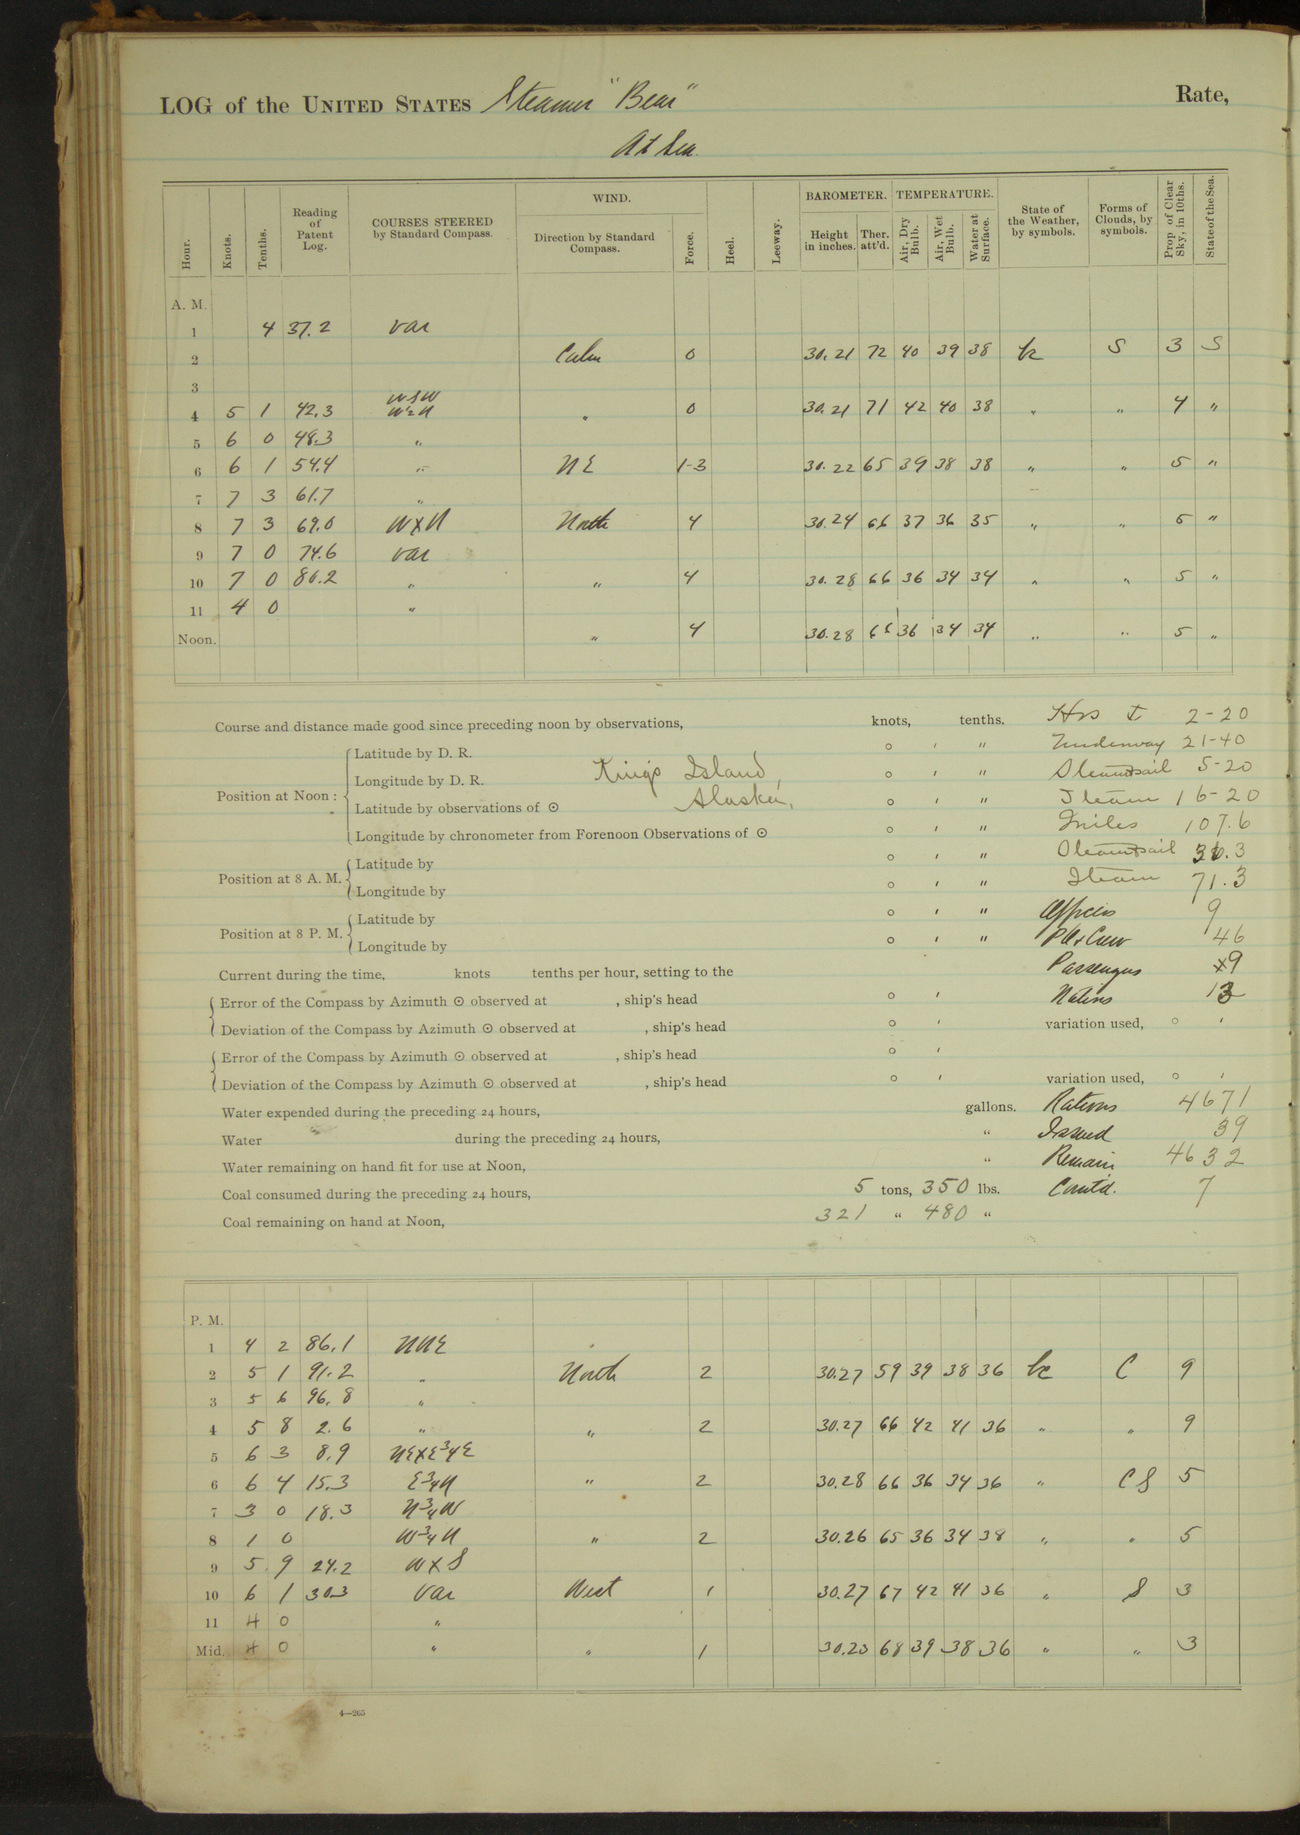 LOG of the UNITED STATES Steamer "Bear" Rate,
At Sea.
Hour. Knots. Tenths. Reading of Patent Log. COURSES STEERED by Standard Compass. WIND. Direction by Standard Compass. Force. Heel. Leeway. BAROMETER. Height in inches. Ther. att'd. TEMPERATURE. Air, Dry Bulb. Air, Wet Bulb. Water at Surface. State of the Weather, by symbols. Forms of Clouds, by symbols. Prop. of Clear Sky, in 10ths. State of the Sea.
A. M.
1 4 37.2 var
2 Calm 0 30.21 72 40 39 38 bc S 3 S
3
WSW
4 5 1 42.3 W½N " 0 30.21 71 42 40 38 " " 4 "
5 6 0 48.3 "
6 6 1 54.4 " NE 1-3 30.22 65 39 38 38 " " 5 "
7 7 3 61.7 "
8 7 3 69.0 WXN North 4 30.24 66 37 36 35 " " 5 "
9 7 0 74.6 var
10 7 0 80.2 " " 4 30.28 66 36 34 34 " " 5 "
11 4 0 "
Noon. " 4 30.28 66 36 34 34 " " 5 "
Course and distance made good since preceding noon by observations, knots, tenths. Hrs 2-20
Latitude by D. R. ° ' " Underway 21-40
Longitude by D. R. King's Island, ° ' " Steam&sail 5-20
Position at Noon :
Latitude by observations of ⊙ Alaska, ° ' " Steam 16-20
Longitude by chronometer from Forenoon Observations of ⊙ ° ' " Miles 107.6
Latitude by ° ' " Steam&sail 36.3
Position at 8 A. M.
Longitude by ° ' " Steam 71.3
Latitude by ° ' " Officers 9
Position at 8 P. M.
Longitude by ° ' " PO&Crew 46
Current during the time, knots tenths per hour, setting to the Passengers 9
Error of the Compass by Azimuth ⊙ observed at , ship's head ° ' Natives 13
Deviation of the Compass by Azimuth ⊙ observed at , ship's head ° ' variation used, ° '
Error of the Compass by Azimuth ⊙ observed at , ship's head ° '
Deviation of the Compass by Azimuth ⊙ observed at , ship's head ° ' variation used, ° '
Water expended during the preceding 24 hours, gallons. Rations 4671
Water during the preceding 24 hours, " Issued 39
Water remaining on hand fit for use at Noon, " Remain 4632
Coal consumed during the preceding 24 hours, 5 tons, 350 lbs. Comt'd. 7
Coal remaining on hand at Noon, 321 " 480 "
P. M.
1 4 2 86.1 NNE
2 5 1 91.2 " North 2 30.27 59 39 38 36 bc C 9
3 5 6 96.8 "
4 5 8 2.6 " " 2 30.27 66 42 41 36 " " 9
5 6 3 8.9 NEXE¾E
6 6 4 15.3 E¾N " 2 30.28 66 36 34 36 " CS 5
7 3 0 18.3 N¾W
8 1 0 W¾N " 2 30.26 65 36 34 38 " " 5
9 5 9 24.2 WXS
10 6 1 30.3 Var West 1 30.27 67 42 41 36 " S 3
11 4 0 "
Mid. 4 0 " " 1 30.23 68 39 38 36 " " 3
4—265